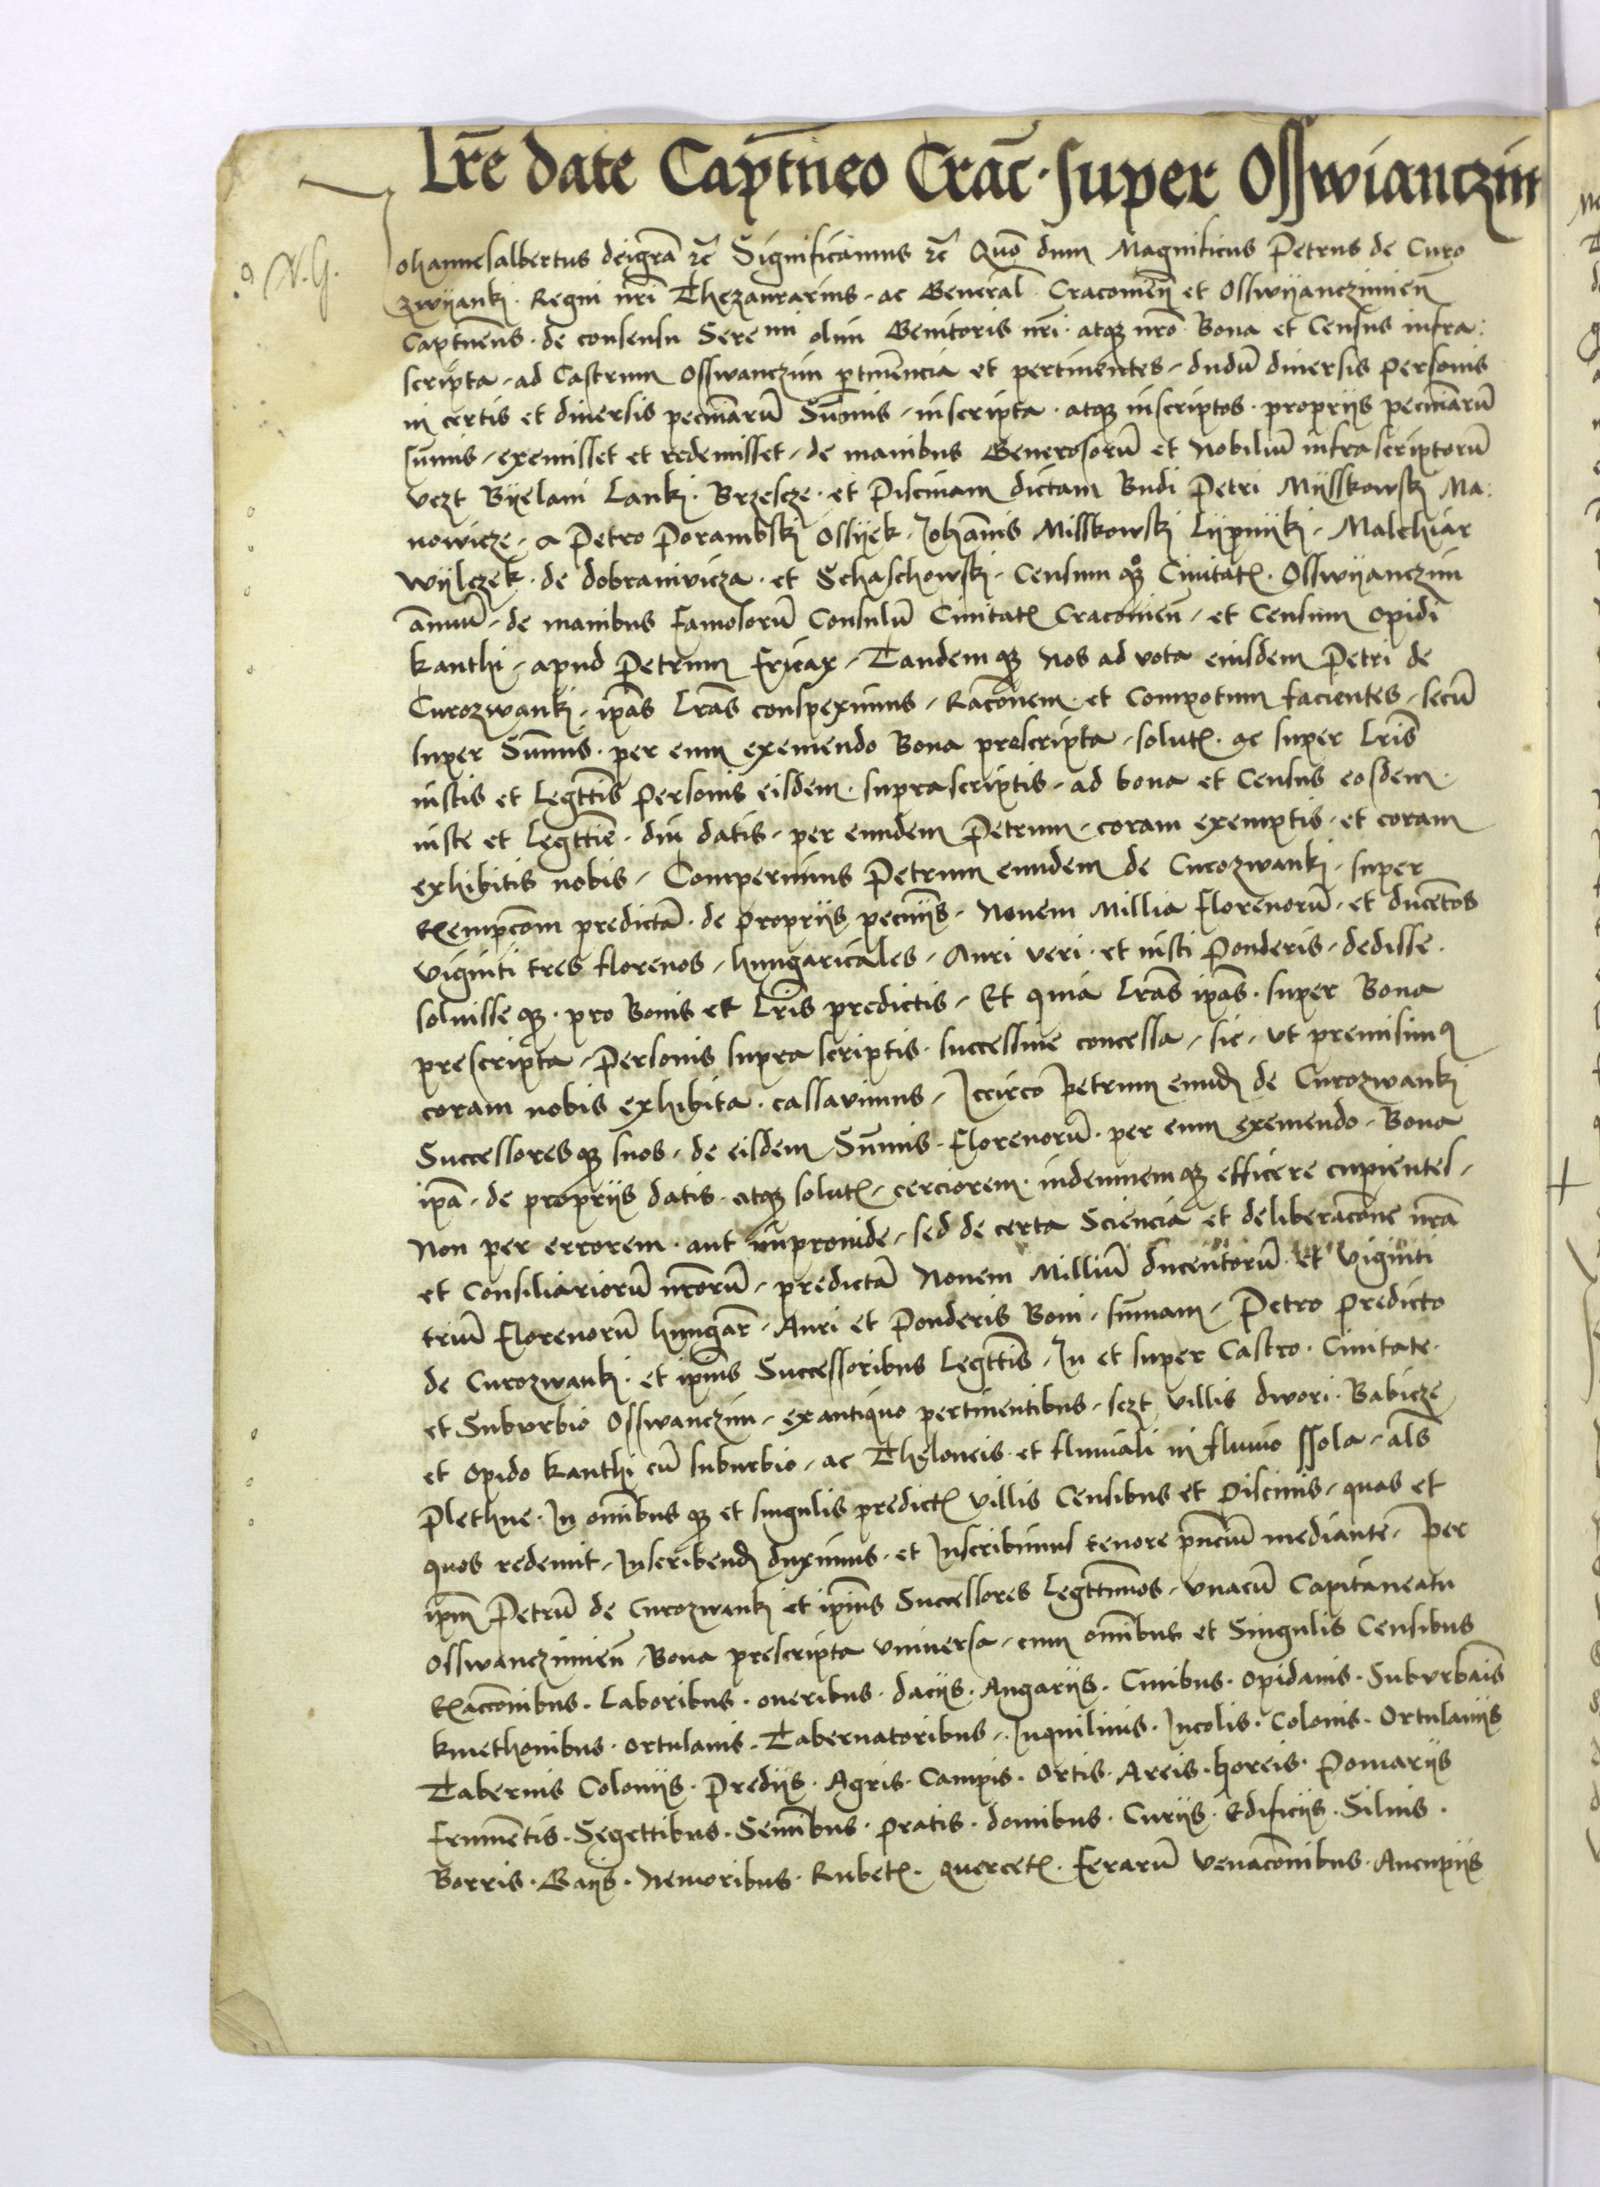 Lr̃e date Cap̃tneo Crac̃ · super Osswianczim
N. G.
Johannesalbertus deigr̃a ꝛc̃ Significamus ꝛc̃ Quõ dum Magnificus Petrus de Curo
zwyanki · Regni nr̃i Thezaurarius · ac General̃ Cracouień et Osswyanczimień
Captneus · de consensu Sere mi olim Genitoris nr̃i · atqꝫ nr̃o · Bona et Census infra:
scripta · ad Castrum Osswanczim ꝑtinẽncia et pertinentes · dudũ diuersis personis
in certis et diuersis pecuniarũ Sum̃is · inscripta · atqꝫ inscriptos · proprijs pecuniarũ
sum̃is · exemisset et redemisset · de manibus Generosorũ et Nobiliũ infrascriptorũ
vczt Byelani Lanki · Brzescze · et Piscinam dictam Budi Petri Mysskowski Ma:
nowicze · a Petro Porambski Ossyek · Johãnis Misskowski Lypnyki · Malchiar
Wylczek · de dobranivicza · et Schaschowski · Censum qꝫ Ciuitatꝭ · Osswyanczim
ãnuũ · de manibus famosorũ Consulũ Ciuitatꝭ Cracouień · et Censum opidi
kanthi · apud Petrum fricax · Tandem qꝫ Nos ad vota eiusdem Petri de
Curozwanki · ip̃as Lr̃as conspeximus · Rac̃onem · et Compotum facientes · secũ
super Sum̃is · per eum exemendo Bona prescripta · solutꝭ · ac super Lr̃is
iustis et Legttĩs personis eisdem · suprascriptis · ad bona et Census eosdem ·
iuste et Legttĩe · diu datis · per eundem Petrum · coram exemptis · et coram
exhibitis nobis · Comperimus Petrum eundem de Curozwanki · super
Exempc̃om predictã · de proprijs pecunijs · Nouem Millia florenorũ · et ducẽtos
viginti tres florenos · hungaricales · Auri veri · et iusti ponderis · dedisse ·
soluisse qꝫ · pro Bonis et Lr̃is predictis · Et quia Lr̃as ip̃as · super Bona
prescripta · Personis supra scriptis · successiue concessa · sic · vt premisimꝰ
coram nobis exhibita · cassauimus · Iccirco Petrum eund̃ de Curozwanki
Successores qꝫ suos · de eisdem Sum̃is · florenorũ · per eum exemendo · Bona
ip̃a · de proprijs datis · atqꝫ solutꝭ · cerciorem · indemnem qꝫ efficere cupientes ·
Non per errorem · aut improuide · sed de certa Sciencia et deliberac̃one nr̃a
et Consiliariorũ nr̃orũ · predictã Nouem Milliũ ducentorũ · et viginti
triũ florenorũ hungar̃ · Auri et Ponderis Boni · sum̃am · Petro predicto
de Curozwanki · et ipius Successoribus Legttĩs · In et super Castro · Ciuitate ·
et Suburbio Osswanczim · exantiquo pertinentibus · sczt villis dwori · Babicze
et opido kanthi cũ suburbio · ac Theloneis · et fluuiali in fluuio ssola · als̃
Plethne · In om̃ibus qꝫ et singulis predictꝭ villis Censibus et Piscinis · quas et
quos redemit · Inscribend̃ duximus · et Inscribimus tenore pñciũ mediante · Per
ip̃m Petrũ de Curozwanki et ipius Successores Legttimos · vnacũ Capitaneatu
Osswanczimień · Bona prescripta vniuersa · cum om̃ibus et Singulis Censibus
Exacc̃onibus · Laboribus · oneribus · dacijs · Angarijs · Ciuibus · opidanis · Suburbaĩs
kmethonibus · ortulanis · Tabernatoribus · Inquilinis · Incolis · Colonis · Ortulanijs
Tabernis Colonijs · Predijs · Agris · Campis · Ortis · Areis · horeis · Pomarijs
frumẽtis · Segettibus · Semĩbus · pratis · domibus · Curijs · Edificijs · Siluis ·
Borris · Gaijs · Nemoribus · Rubetꝭ · Quercetꝭ · Ferarũ venac̃onibus · Aucupijs